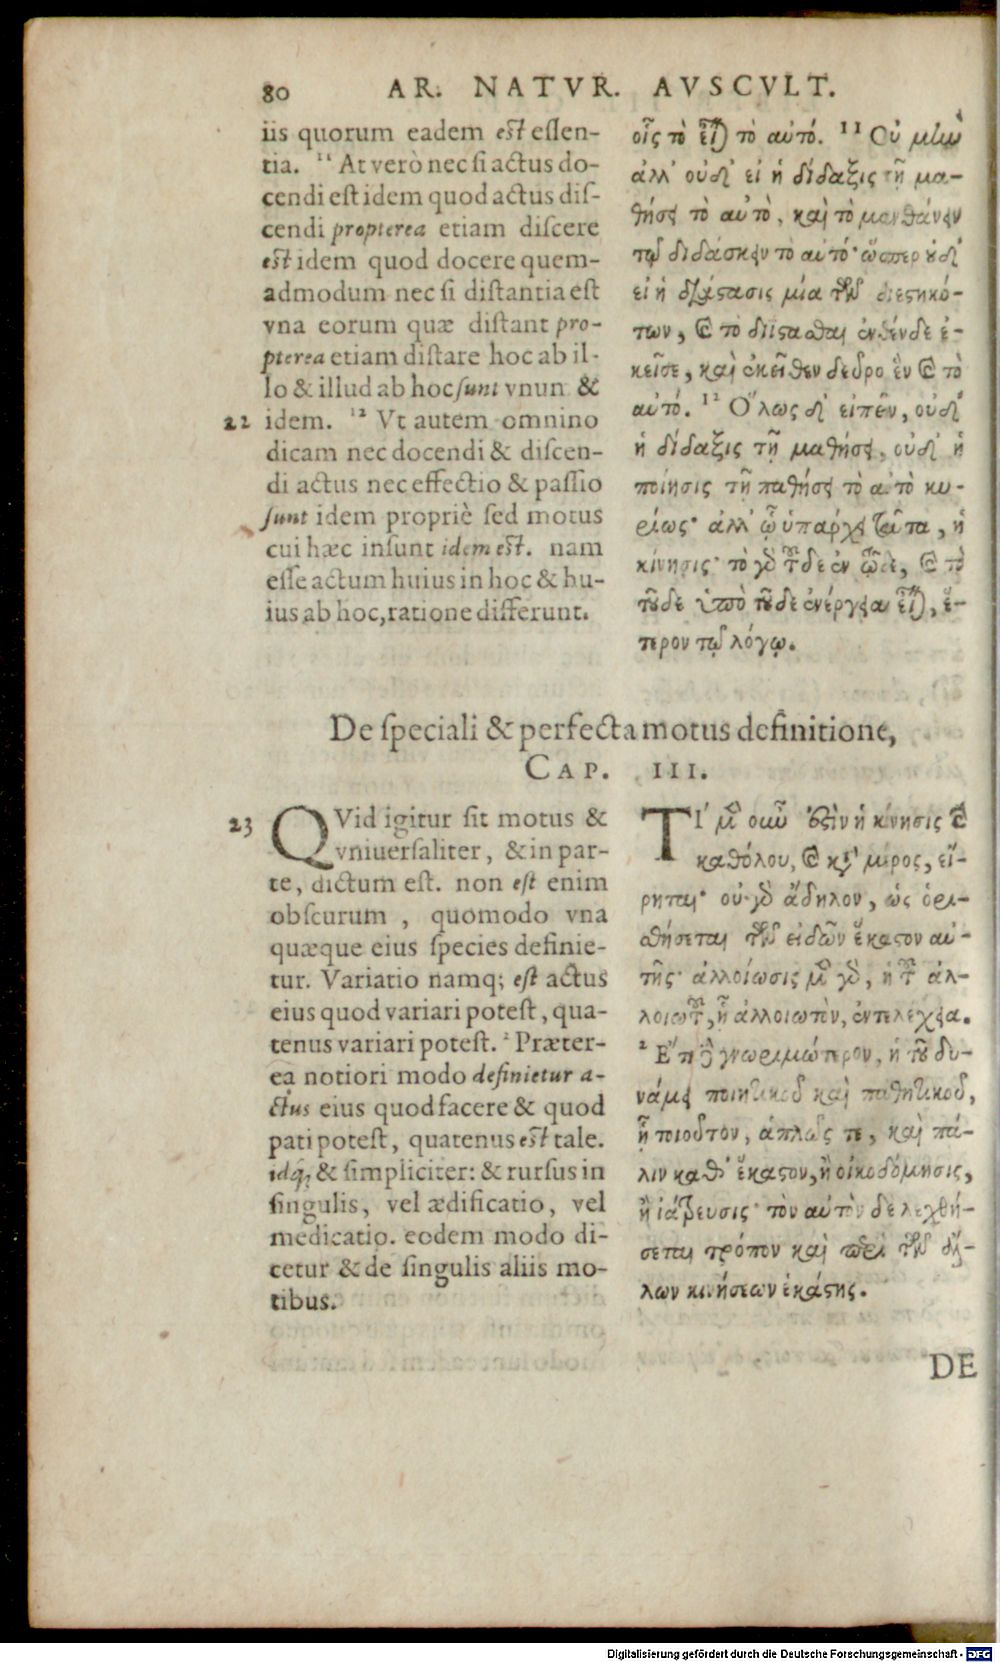 80 AR. NATVR. AVSCVLT.
iis quorum eadem est essen-
tia. 11 At verò nec si actus do-
cendi est idem quod actus dis-
cendi propterea etiam discere
est idem quod docere quem-
admodum nec si distantia est
vna eorum quæ distant pro-
pterea etiam distare hoc ab il-
lo & illud ab hoc sunt vnun &
22 idem. 12 Vt autem omnino
dicam nec docendi & discen-
di actus nec effectio & passio
sunt idem propriè sed motus
cui hæc insunt idem est. nam
esse actum huius in hoc & hu-
ius ab hoc, ratione differunt.
οἷς τὸ εἶναι τὸ αὐτό. 11 Οὐ μὴν
ἀλλ' οὐδ' εἰ ἡ δίδαξις τῇ μα-
θήσει τὸ αὐτὸ, καὶ τὸ μανθάνειν
τῷ διδάσκειν τὸ αὐτό· ὥσπερ οὐδ'
εἰ ἡ διάστασις μία τῶν διεστηκό-
των, καὶ τὸ διίστασθαι ἐνθένδε ἐ-
κεῖσε, καὶ ἐκεῖθεν δεῦρο ἓν καὶ τὸ
αὐτό. 12 Ὅλως δ' εἰπεῖν, οὐδ'
ἡ δίδαξις τῇ μαθήσει, οὐδ' ἡ
ποίησις τῇ παθήσει τὸ αὐτὸ κυ-
ρίως· ἀλλ' ᾧ ὑπάρχει ταῦτα, ἡ
κίνησις· τὸ γὰρ τοῦδε ἐν τῷδε, καὶ τὸ
τοῦδε ὑπὸ τοῦδε ἐνέργειαν εἶναι, ἕ-
τερον τῷ λόγῳ.
De speciali & perfecta motus definitione,
CAP. III.
23 QVid igitur sit motus &
vniuersaliter, & in par-
te, dictum est. non est enim
obscurum, quomodo vna
quæque eius species definie-
tur. Variatio namq; est actus
eius quod variari potest, qua-
tenus variari potest. 2 Præter-
ea notiori modo definietur a-
ctus eius quod facere & quod
pati potest, quatenus est tale.
idq́; & simpliciter: & rursus in
singulis, vel ædificatio, vel
medicatio. eodem modo di-
cetur & de singulis aliis mo-
tibus.
ΤΙ μὲν οὖν ἐστὶν ἡ κίνησις καὶ
καθόλου, καὶ κατὰ μέρος, εἴ-
ρηται· οὐ γὰρ ἄδηλον, ὡς ὁρι-
σθήσεται τῶν εἰδῶν ἕκαστον αὐ-
τῆς· ἀλλοίωσις μὲν γὰρ, ἡ τοῦ ἀλ-
λοιωτοῦ, ᾗ ἀλλοιωτὸν, ἐντελέχεια.
2 Ἔτι δὲ γνωριμώτερον, ἡ τοῦ δυ-
νάμει ποιητικοῦ καὶ παθητικοῦ,
ᾗ τοιοῦτον, ἁπλῶς τε, καὶ πά-
λιν καθ' ἕκαστον, ἢ οἰκοδόμησις,
ἢ ἰάτρευσις· τὸν αὐτὸν δὲ λεχθή-
σεται τρόπον καὶ περὶ τῶν ἄλ-
λων κινήσεων ἑκάστης.
DE
Digitalisierung gefördert durch die Deutsche Forschungsgemeinschaft - DFG